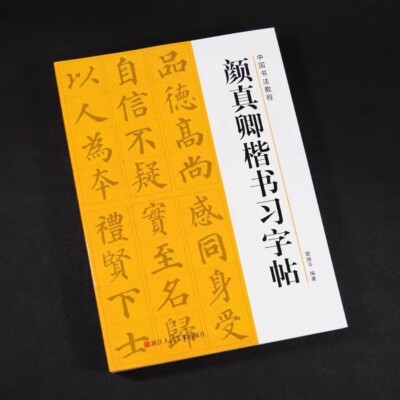 中国书法教程
颜真卿楷书习字帖
编著
品德高尚
感同身受
自信不疑
實至名歸
以人為本
禮賢下士
浙江人民美术出版社